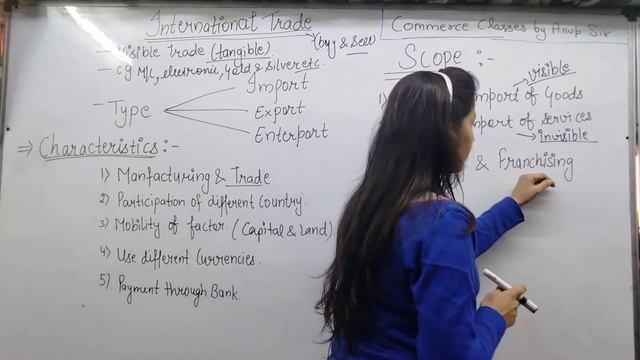 International Trade
(buy & Sell)
— Visible Trade (tangible)
— eg M/c, electronic, gold & silver etc.
— Type
Import
Export
Enterport
⇒ Characteristics :-
1) Manfacturing & Trade
2) Participation of different Country.
3) Mobility of factor. (Capital & Land)
4) Use different Currencies.
5) Payment through Bank.
Commerce Classes by Anup Sir
Scope :-
visible
Import of Goods
of services
invisible
& Franchising